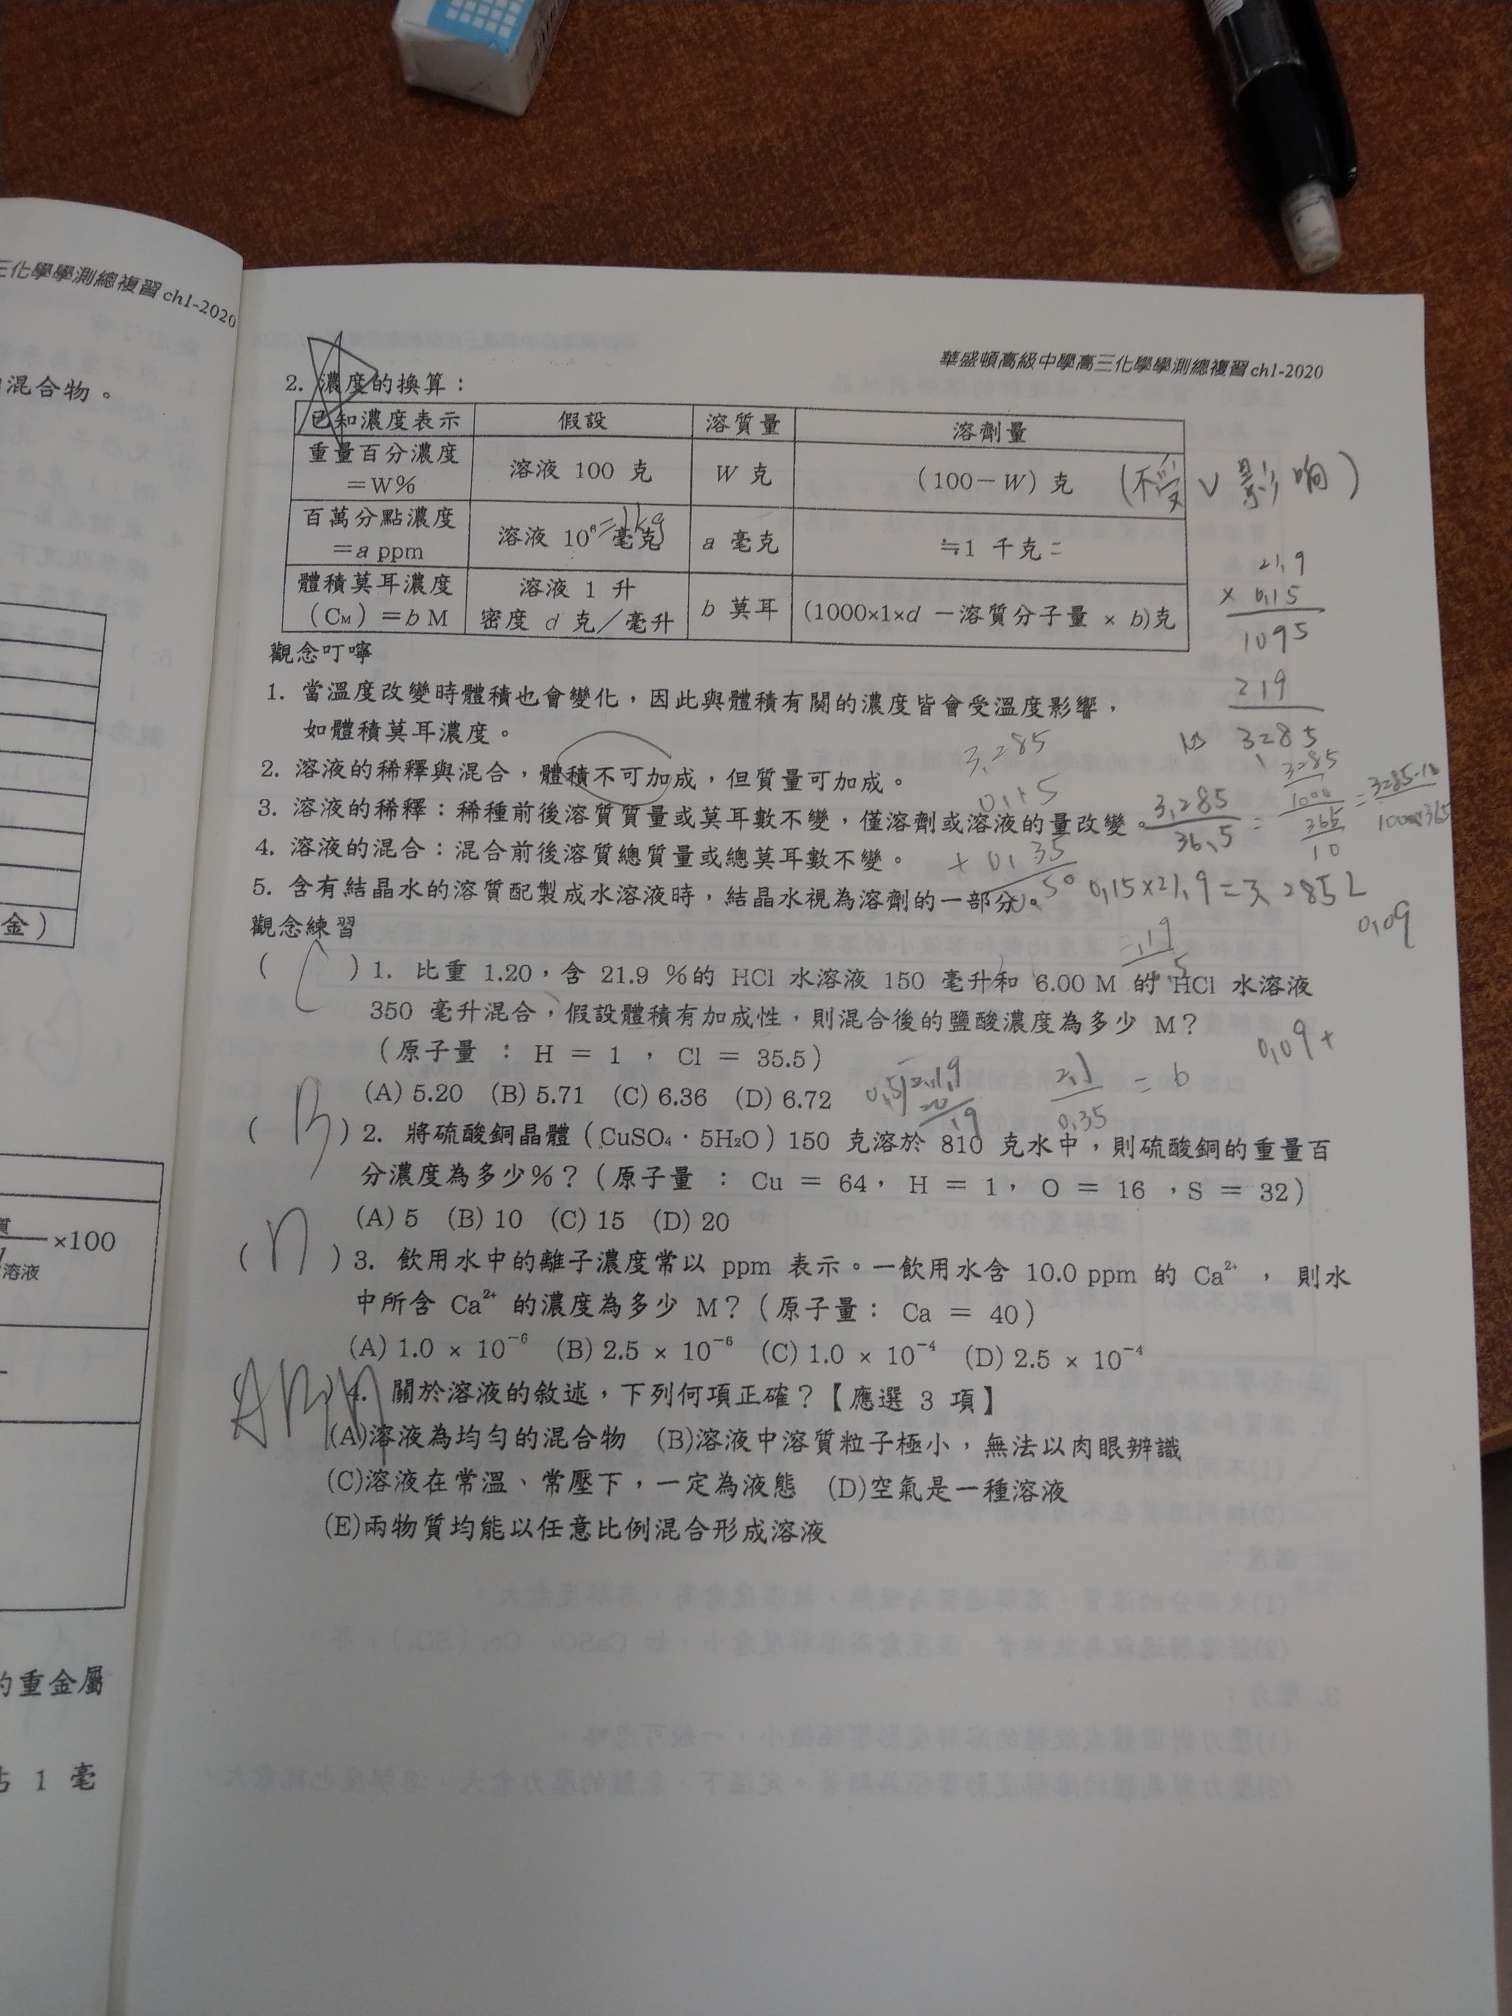 三化學學測總複習ch1-2020
混合物。
金)
×100
溶液
的重金屬
占 1 毫
華盛頓高級中學高三化學學測總複習ch1-2020
2. 濃度的換算：
已知濃度表示 假設 溶質量 溶劑量
重量百分濃度 =W% 溶液 100 克 W 克 (100-W) 克 (不受V影响)
百萬分點濃度 =a ppm 溶液 10⁶ 毫克 =1kg a 毫克 ≒1 千克
體積莫耳濃度 (CM) =b M 溶液 1 升 密度 d 克／毫升 b 莫耳 (1000×1×d －溶質分子量 × b)克
21.9
× 0.15
1095
219
3285
觀念叮嚀
1. 當溫度改變時體積也會變化，因此與體積有關的濃度皆會受溫度影響，
如體積莫耳濃度。
3.285
2. 溶液的稀釋與混合，體積不可加成，但質量可加成。
0.15
3. 溶液的稀釋：稀種前後溶質質量或莫耳數不變，僅溶劑或溶液的量改變。
3.285/36.5 = 3285/1000 / 365/10 =
4. 溶液的混合：混合前後溶質總質量或總莫耳數不變。
+ 0.35
5. 含有結晶水的溶質配製成水溶液時，結晶水視為溶劑的一部分。
0.15×21.9=3.285L
0.09
觀念練習
( C ) 1. 比重 1.20，含 21.9 %的 HCl 水溶液 150 毫升和 6.00 M 的 HCl 水溶液
350 毫升混合，假設體積有加成性，則混合後的鹽酸濃度為多少 M？
(原子量 : H = 1 , Cl = 35.5)
0.09+
(A) 5.20 (B) 5.71 (C) 6.36 (D) 6.72
2.1/0.35 = 6
( B ) 2. 將硫酸銅晶體（CuSO₄·5H₂O）150 克溶於 810 克水中，則硫酸銅的重量百
分濃度為多少%？(原子量 : Cu = 64, H = 1, O = 16 ,S = 32)
(A) 5 (B) 10 (C) 15 (D) 20
( D ) 3. 飲用水中的離子濃度常以 ppm 表示。一飲用水含 10.0 ppm 的 Ca²⁺ ， 則水
中所含 Ca²⁺ 的濃度為多少 M？(原子量: Ca = 40)
(A) 1.0 × 10⁻⁶ (B) 2.5 × 10⁻⁶ (C) 1.0 × 10⁻⁴ (D) 2.5 × 10⁻⁴
( ABD ) 4. 關於溶液的敘述，下列何項正確？【應選 3 項】
(A)溶液為均勻的混合物 (B)溶液中溶質粒子極小，無法以肉眼辨識
(C)溶液在常溫、常壓下，一定為液態 (D)空氣是一種溶液
(E)兩物質均能以任意比例混合形成溶液